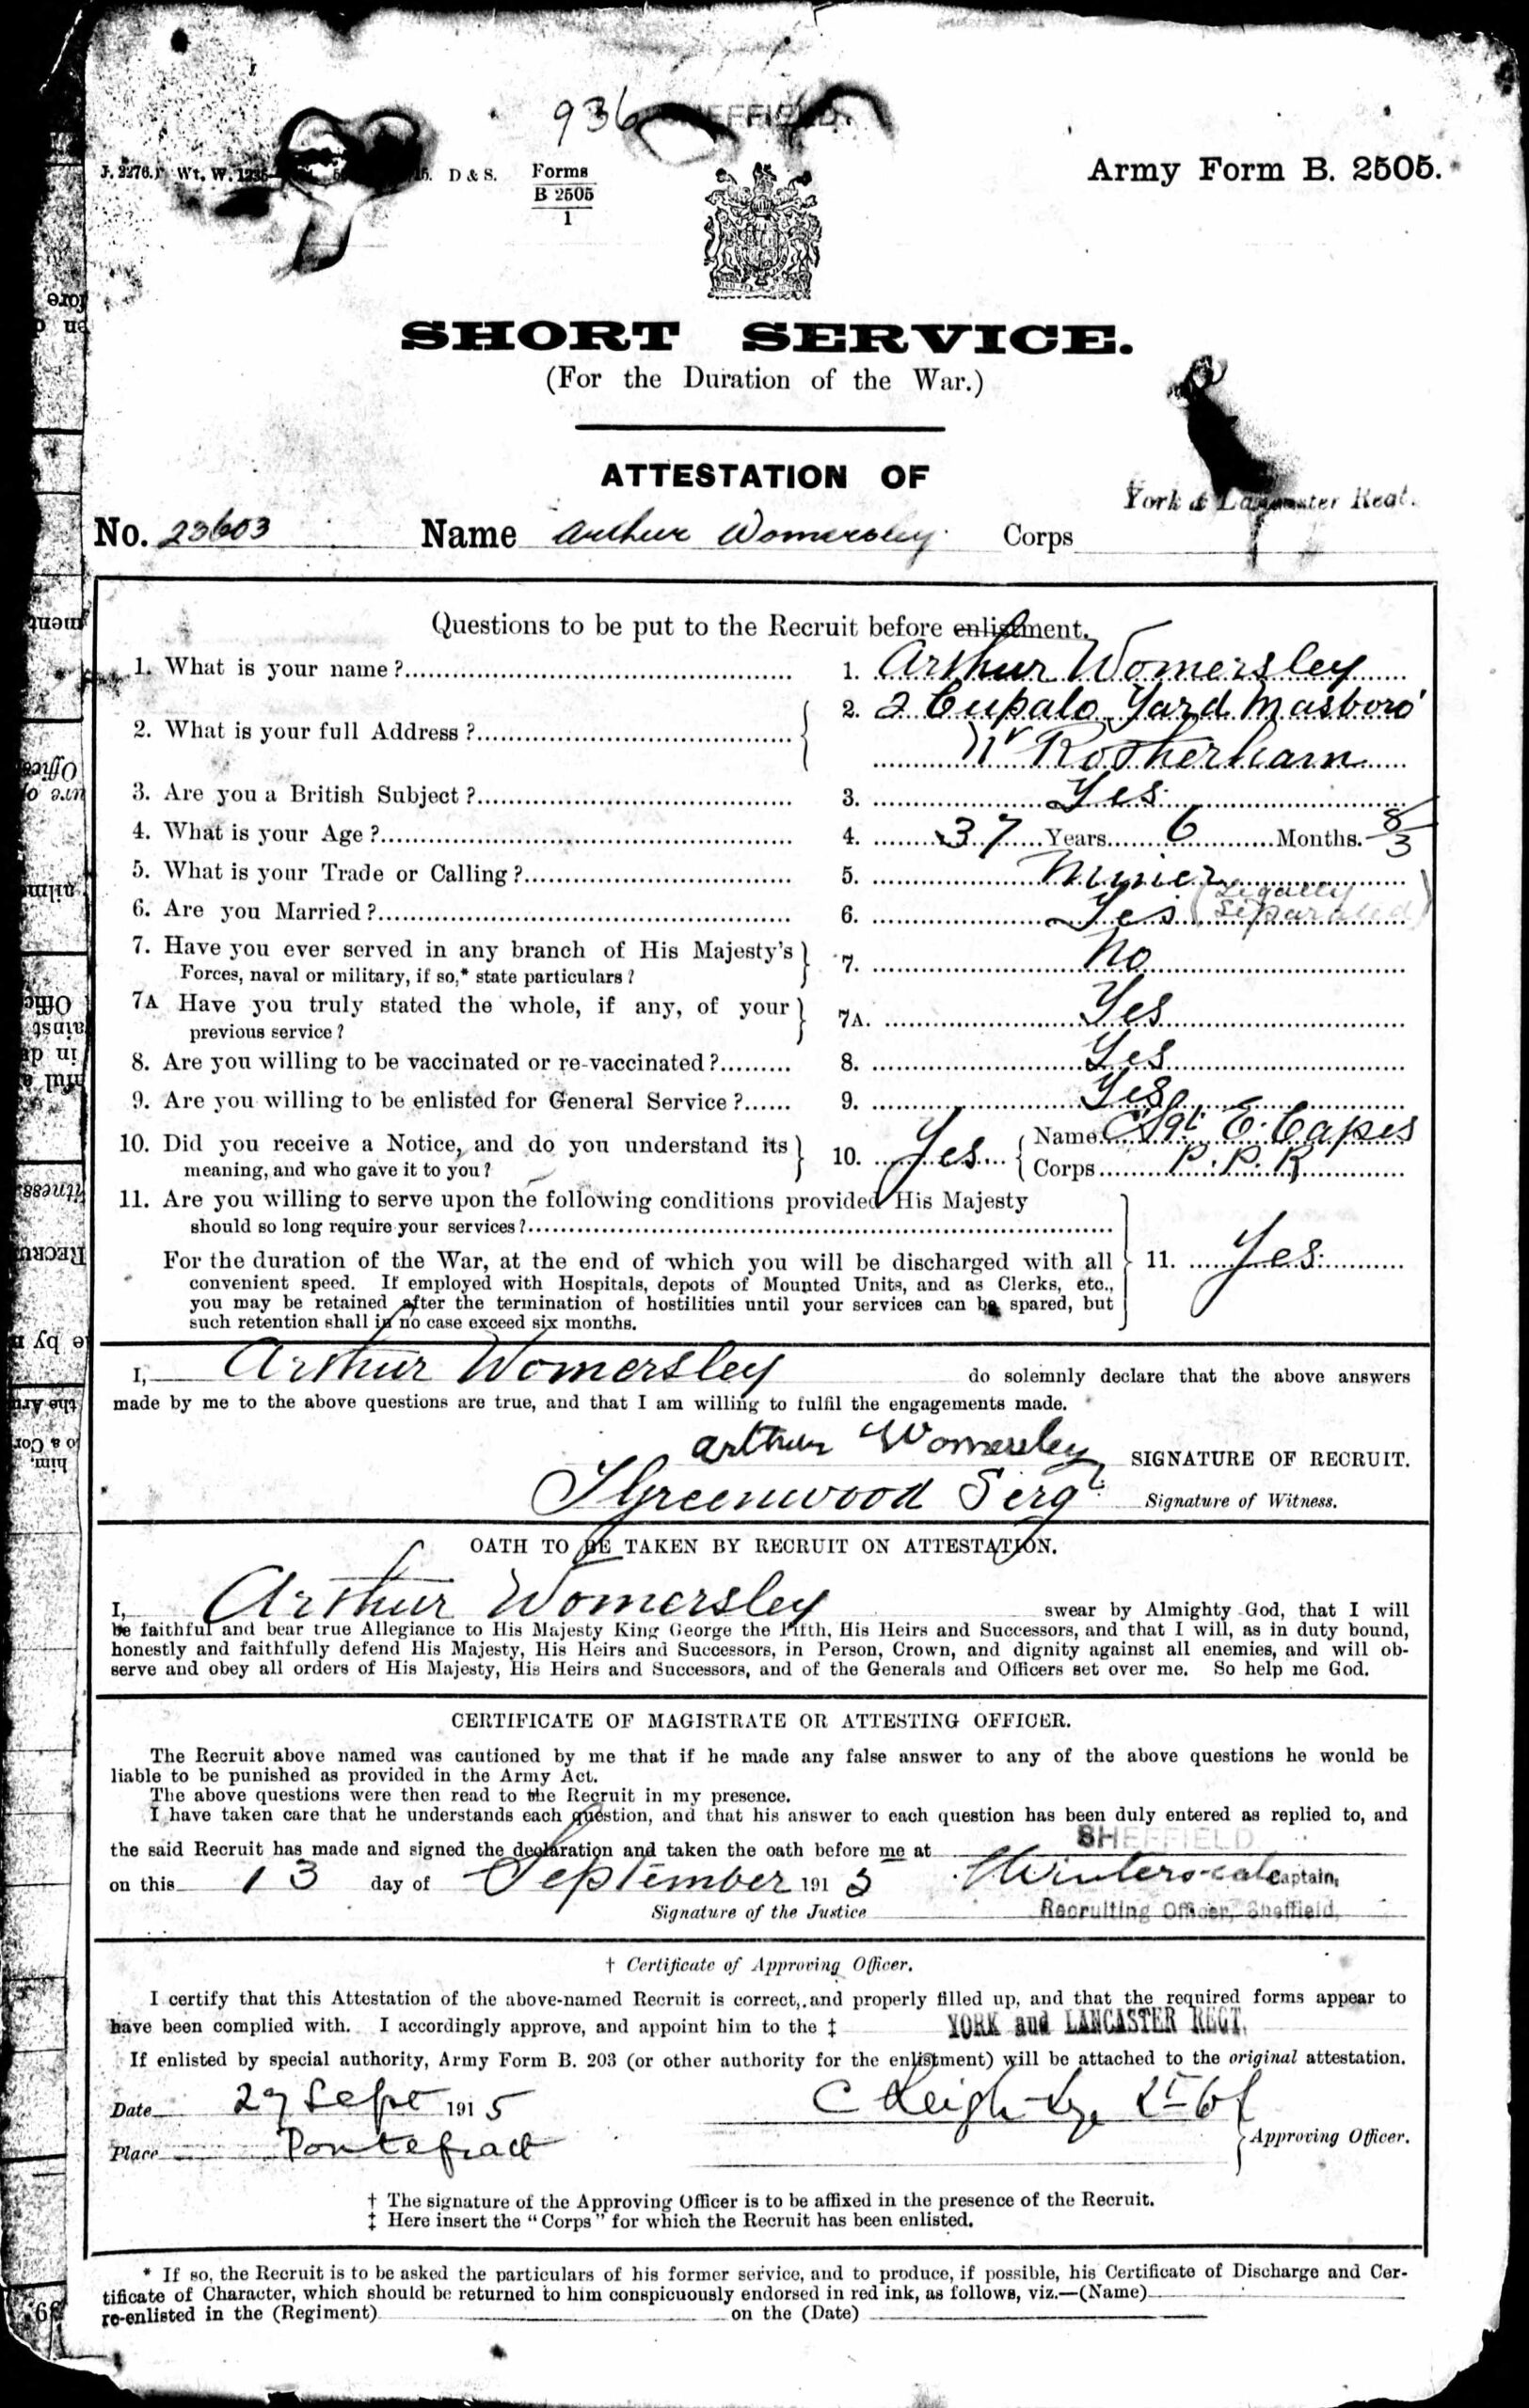 936 SHEFFIELD
J. 2276.) Wt. W. 1235 D & S. Forms B 2505 1
Army Form B. 2505.
SHORT SERVICE.
(For the Duration of the War.)
ATTESTATION OF
York & Lancaster Regt.
No. 23603 Name Arthur Womersley Corps
Questions to be put to the Recruit before enlistment.
1. What is your name? 1. Arthur Womersley
2. What is your full Address? 2. 2 Cupalo Yard Masboro'
Nr Rotherham
3. Are you a British Subject? 3. Yes
4. What is your Age? 4. 37 Years 6 Months. 8/3
5. What is your Trade or Calling? 5. Miner
6. Are you Married? 6. Yes (Legally Separated)
7. Have you ever served in any branch of His Majesty's 7. No
Forces, naval or military, if so,* state particulars?
7A Have you truly stated the whole, if any, of your 7A. Yes
previous service?
8. Are you willing to be vaccinated or re-vaccinated? 8. Yes
9. Are you willing to be enlisted for General Service? 9. Yes
10. Did you receive a Notice, and do you understand its 10. Yes Name C Sgt E. Capes
meaning, and who gave it to you? Corps P.P.R
11. Are you willing to serve upon the following conditions provided His Majesty
should so long require your services?
For the duration of the War, at the end of which you will be discharged with all 11. Yes
convenient speed. If employed with Hospitals, depots of Mounted Units, and as Clerks, etc.,
you may be retained after the termination of hostilities until your services can be spared, but
such retention shall in no case exceed six months.
I, Arthur Womersley do solemnly declare that the above answers
made by me to the above questions are true, and that I am willing to fulfil the engagements made.
Arthur Womersley SIGNATURE OF RECRUIT.
Greenwood Sergt Signature of Witness.
OATH TO BE TAKEN BY RECRUIT ON ATTESTATION.
I, Arthur Womersley swear by Almighty God, that I will
be faithful and bear true Allegiance to His Majesty King George the Fifth, His Heirs and Successors, and that I will, as in duty bound,
honestly and faithfully defend His Majesty, His Heirs and Successors, in Person, Crown, and dignity against all enemies, and will ob-
serve and obey all orders of His Majesty, His Heirs and Successors, and of the Generals and Officers set over me. So help me God.
CERTIFICATE OF MAGISTRATE OR ATTESTING OFFICER.
The Recruit above named was cautioned by me that if he made any false answer to any of the above questions he would be
liable to be punished as provided in the Army Act.
The above questions were then read to the Recruit in my presence.
I have taken care that he understands each question, and that his answer to each question has been duly entered as replied to, and
the said Recruit has made and signed the declaration and taken the oath before me at SHEFFIELD
on this 13 day of September 1915 Captain,
Signature of the Justice Recruiting Officer, Sheffield,
† Certificate of Approving Officer.
I certify that this Attestation of the above-named Recruit is correct, and properly filled up, and that the required forms appear to
have been complied with. I accordingly approve, and appoint him to the ‡ YORK and LANCASTER REGT.
If enlisted by special authority, Army Form B. 203 (or other authority for the enlistment) will be attached to the original attestation.
Date 27 Sept 1915
Place Pontefract Approving Officer.
† The signature of the Approving Officer is to be affixed in the presence of the Recruit.
‡ Here insert the "Corps" for which the Recruit has been enlisted.
* If so, the Recruit is to be asked the particulars of his former service, and to produce, if possible, his Certificate of Discharge and Cer-
tificate of Character, which should be returned to him conspicuously endorsed in red ink, as follows, viz.—(Name)
re-enlisted in the (Regiment) on the (Date)